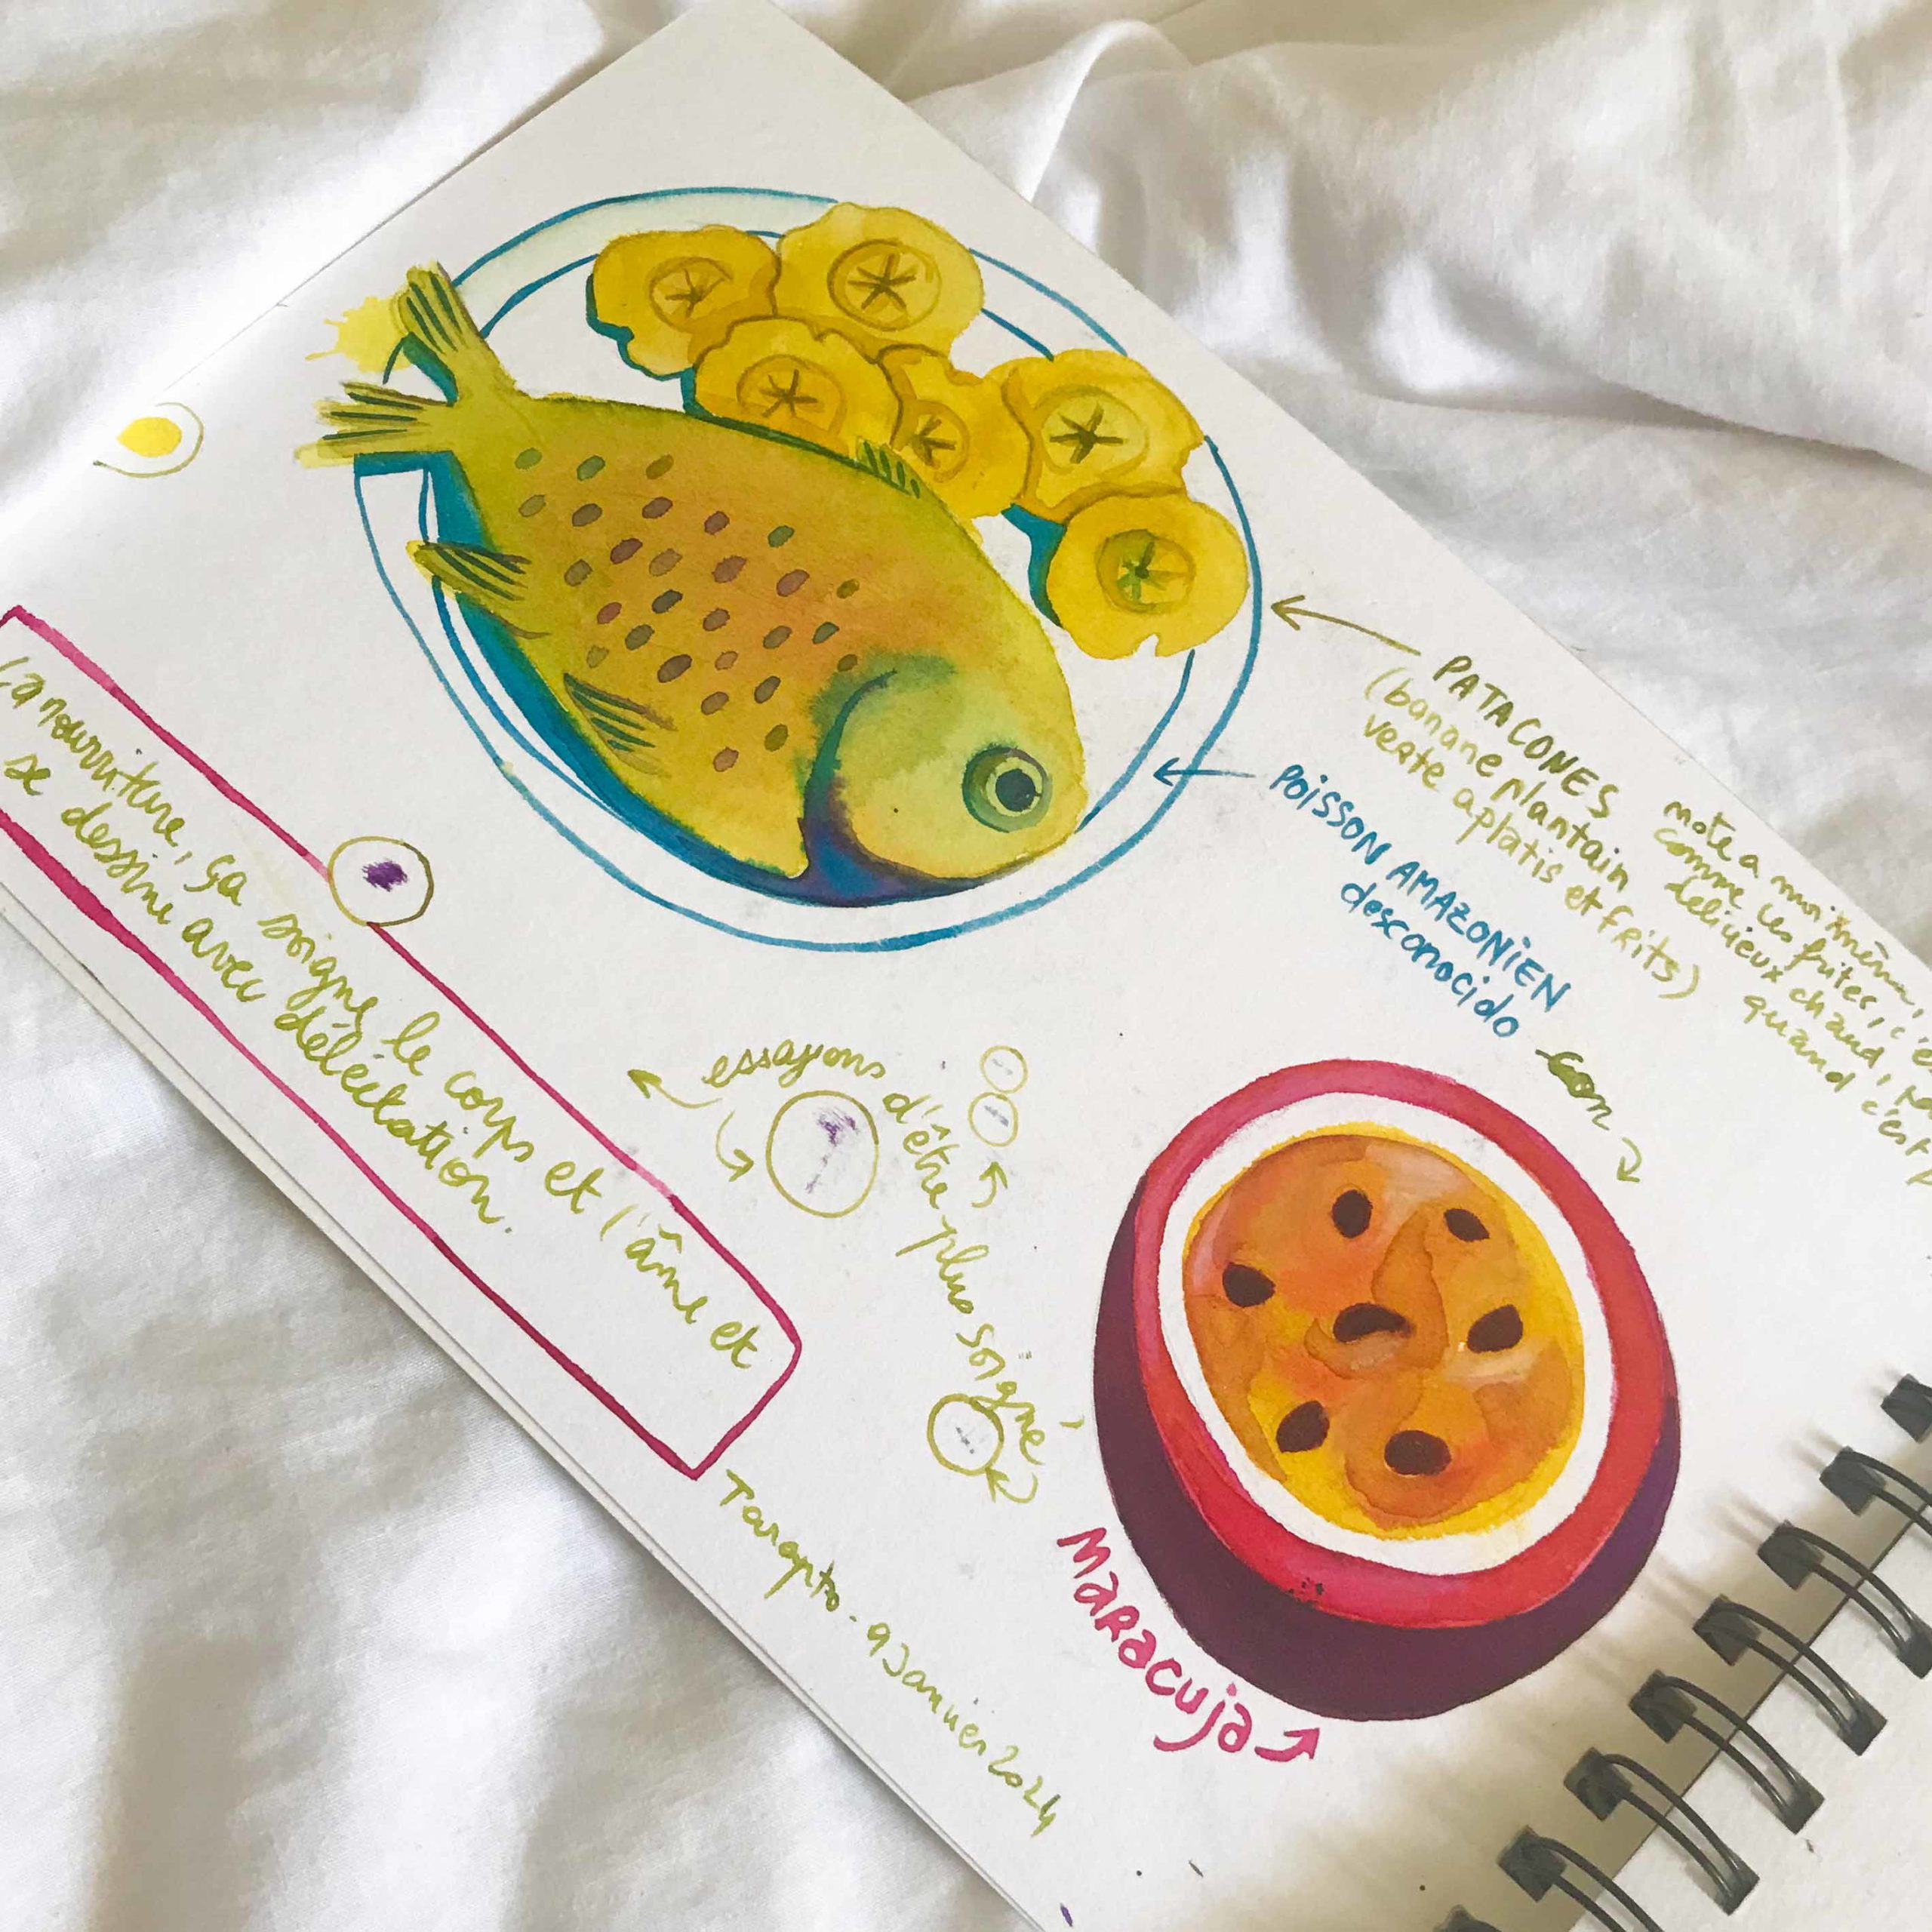 PATACONES
(banane plantain
verte aplatis et frits)
note a moi même,
comme les frites, c'e
délicieux chaud,
quand c'est
POISSON AMAZONIEN
desconocido con
La nourriture, ça soigne le corps et l'âme et
se dessine avec délectation.
essayons
d'être plus soigné
Maracuja
Tarapto - 9 Janvier 2024